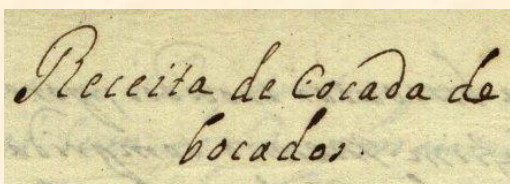 Receita de Cocada de
bocados.